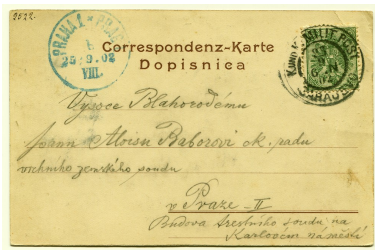 2522.
PRAHA 1
25.9.02
VIII.
Correspondenz-Karte
Dopisnica
Vysoce Blahorodému
panu Aloisu Baborovi ck. radu
vrchního zemského soudu
v Praze - II
Budova trestního soudu na
Karlovém náměstí